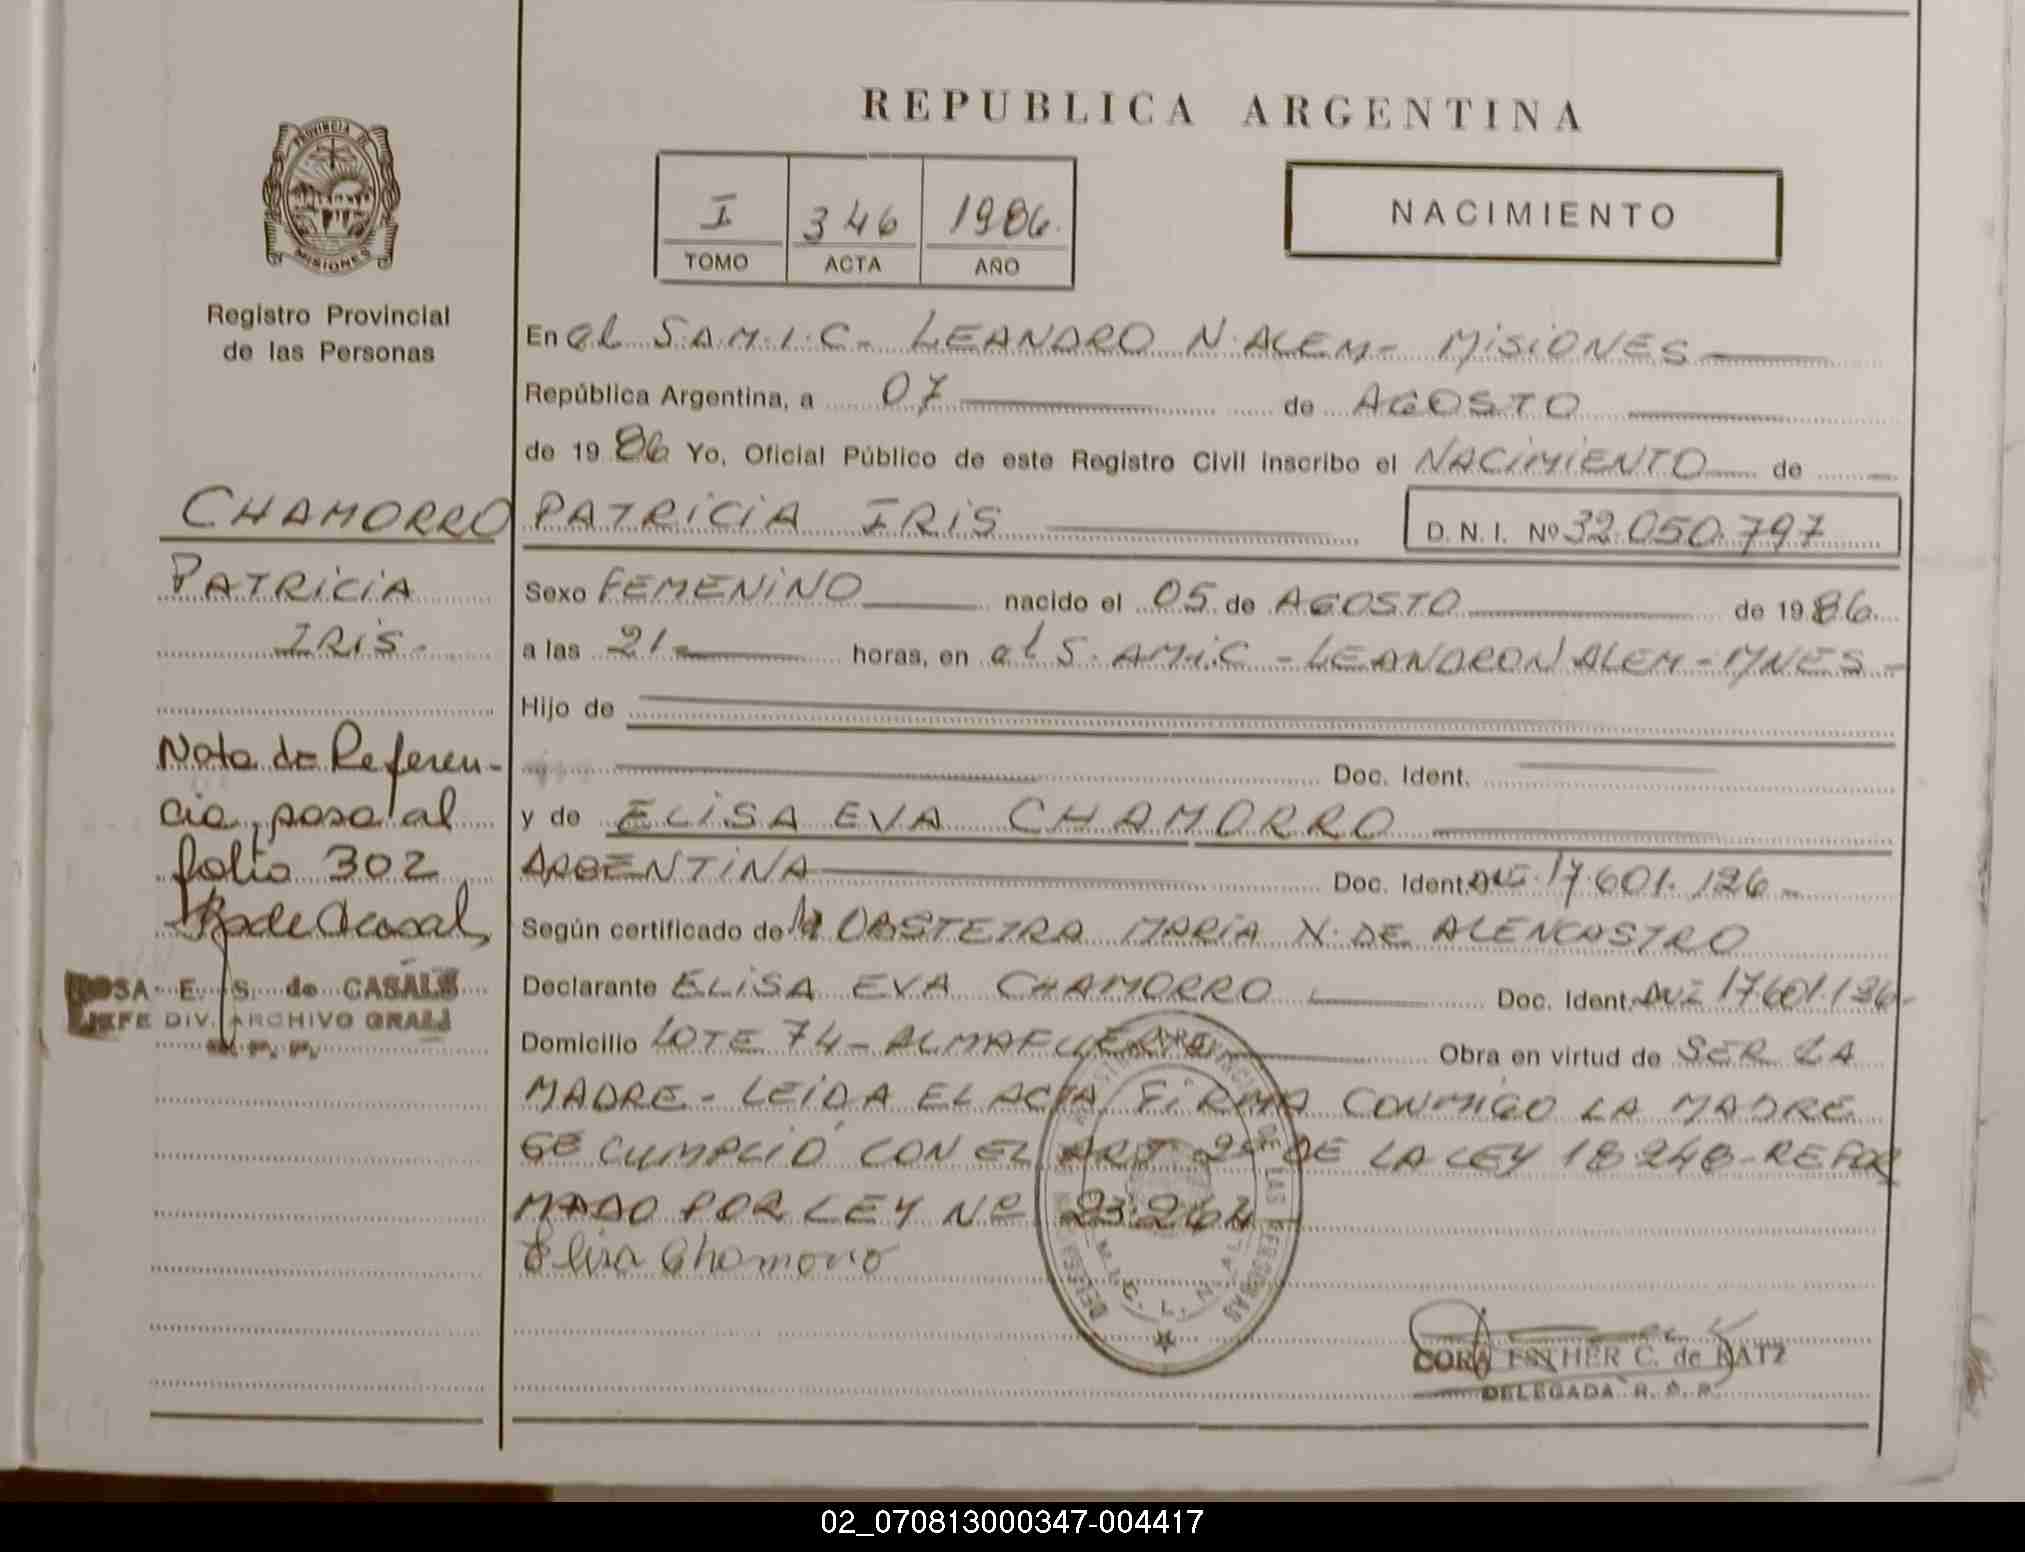 REPUBLICA ARGENTINA
PROVINCIA DE
MISIONES
Registro Provincial
de las Personas
I 346 1986.
TOMO ACTA AÑO
NACIMIENTO
En el S.A.M.I.C- LEANDRO N. ALEM- MISIONES
República Argentina, a 07 de AGOSTO
de 1986 Yo, Oficial Público de este Registro Civil inscribo el NACIMIENTO de
CHAMORRO PATRICIA IRIS D. N. I. Nº 32.050.797
PATRICIA
IRIS.
Sexo FEMENINO nacido el 05 de AGOSTO de 1986.
a las 21 horas, en el S. AM.I.C - LEANDRO N ALEM - MNES -
Hijo de
Doc. Ident.
y de ELISA EVA CHAMORRO
ARGENTINA Doc. Ident. DNI. 17.601.126-
Según certificado de la OBSTETRA MARIA N. DE ALENCASTRO
Declarante ELISA EVA CHAMORRO Doc. Ident. DNI 17.601.126-
Domicilio LOTE 74 - ALMAFUERTE Obra en virtud de SER LA
MADRE - LEIDA EL ACTA, FIRMA CONMIGO LA MADRE
SE CUMPLIÓ CON EL ART 2º DE LA LEY 18248-REFOR
MADO POR LEY Nº 23.264
Elisa Chamorro
Nota de Referen-
cia, pasa al
folio 302
ROSA E. S. de CASALS
JEFE DIV. ARCHIVO GRAL
LAS PERSONAS
CORA ESTHER C. de KATZ
DELEGADA R. P. P.
02_070813000347-004417